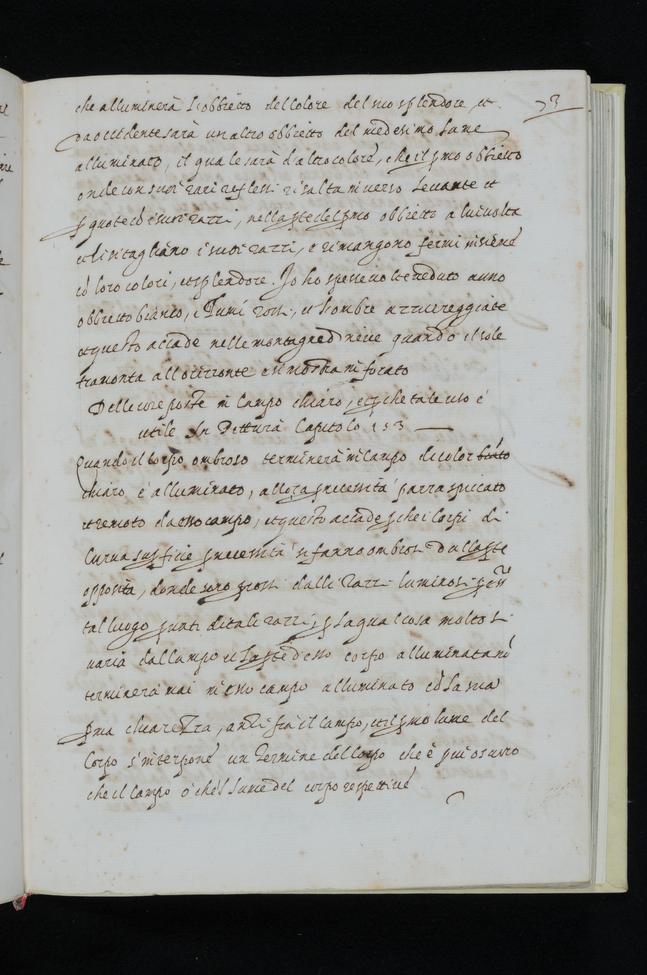 73
che alluminerà l'obbietto del colore del suo splendore, et
da occidente sarà un altro obbietto del medesimo lume
alluminato, il quale sarà d'altro colore, che il pmo obbietto
onde con suoi razi reflessi risalta in verso levante et
pquote cō i suoi razzi, nella pte del pmo obbietto a lui volta
et li si tagliano i suoi razzi, e rimangono fermi insieme
cō loro colori, et splendore. Io ho spesse volte veduto a uno
obbietto bianco, i lumi rossi, et l'ombre azzurreggiate
et questo accade nelle montagne di neve quando il sole
tramonta all'orizzonte e si mostra infocato
Delle cose poste in campo chiaro, et pche tale uso è
utile in Pittura Capitolo 153
Quando il corpo ombroso terminerà in campo di color
chiaro, e alluminato, allora p necessità parrà spiccato
et remoto da esso campo, et questo accade pche i corpi di
curva supficie p necessità si fanno ombrosi dalla pte
opposita, donde sono pcossi dalli razzi luminosi
tal luogo privati di tali razzi, p la qual cosa molto si
varia dal campo et la pte d'esso corpo alluminata nō
terminerà mai in esso campo alluminato cō la sua
pma chiarezza, anzi fra il campo, et il pmo lume del
corpo s'interpone un termine del corpo che è più oscuro
che il campo o che'l lume del corpo respettive